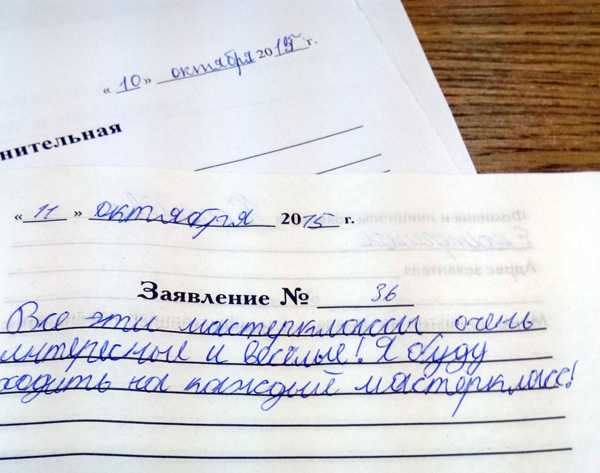 « 10 » октября 2015 г.
нительная
« 11 » октября 2015 г.
Заявление № 36
Все эти мастерклассы очень
интересные и весёлые! Я буду
ходить на каждый мастеркласс!